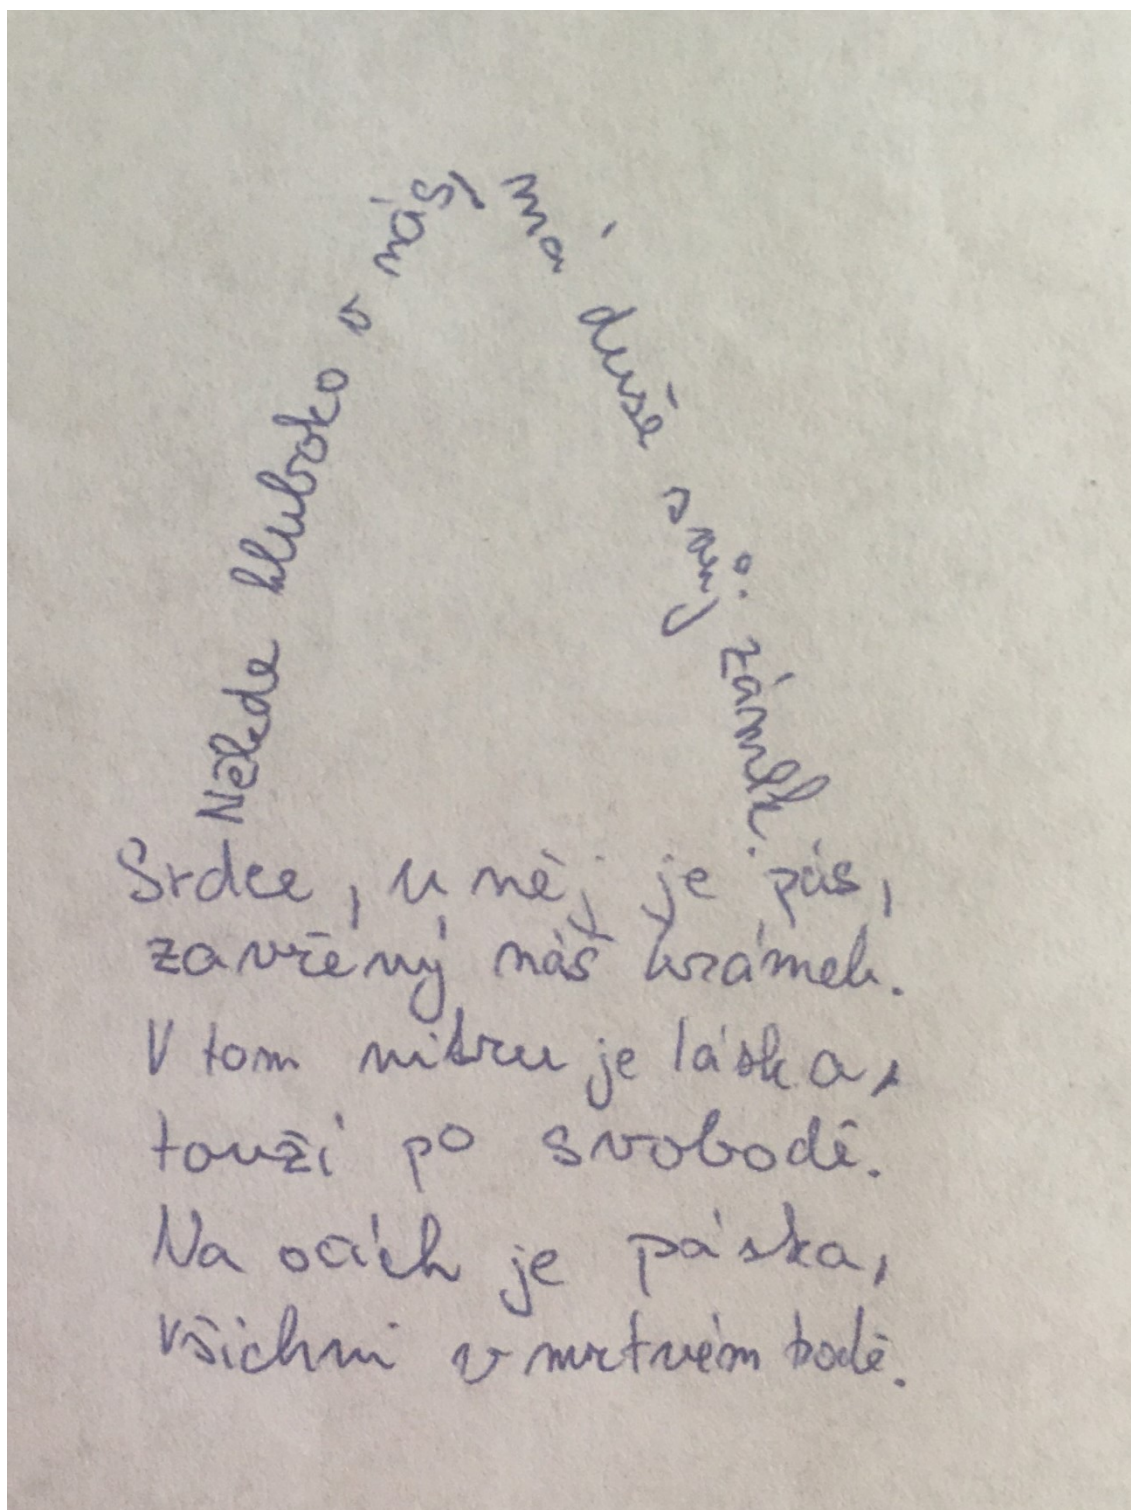 Někde hluboko v nás,
má duše svůj zámek.
Srdce, u něj je pás,
zavřený náš krámek.
V tom nitru je láska,
touží po svobodě.
Na očích je páska,
všichni v mrtvém bodě.